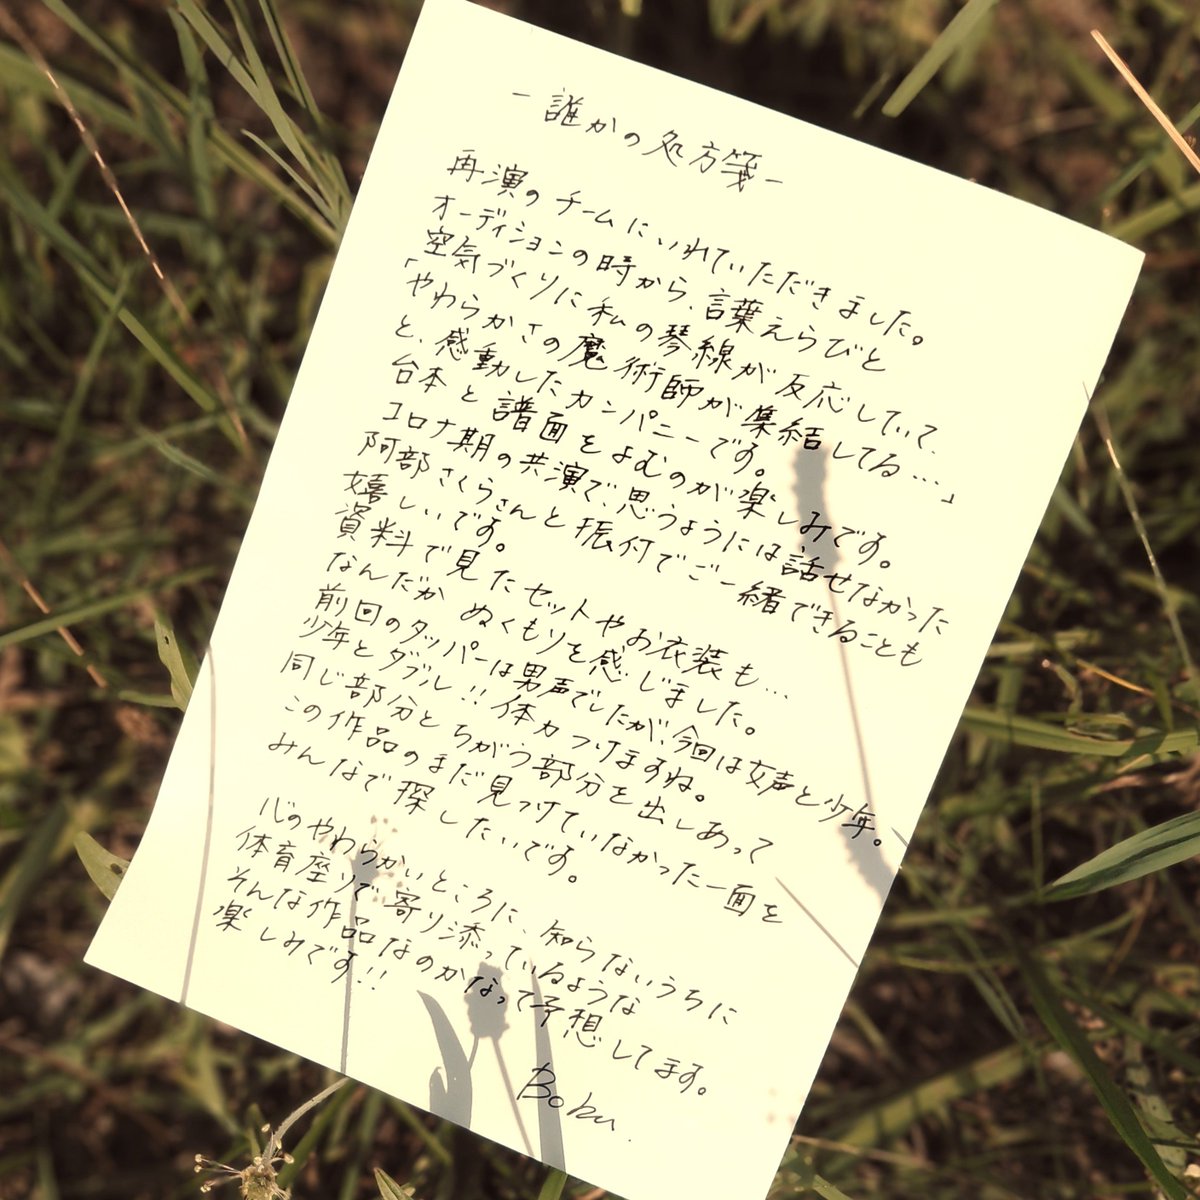 -誰かの処方箋-
再演のチームにいれていただきました。
オーディションの時から、言葉えらびと
空気づくりに私の琴線が反応していて、
「やわらかさの魔術師が集結してる…」
と、感動したカンパニーです。
台本と譜面をよむのが楽しみです。
コロナ期の共演で、思うようには話せなかった
阿部さくらさんと振付でご一緒できることも
嬉しいです。
資料で見たセットやお衣装も…
なんだか ぬくもりを感じました。
前回のタッパーは男声でしたが、今回は女声と少年。
少年とダブル!! 体力つけますね。
同じ部分とちがう部分を出しあって
この作品のまだ見つけていなかった一面を
みんなで探したいです。
心のやわらかいところに、知らないうちに
体育座りで寄り添っているような
そんな作品なのかなって予想してます。
楽しみです!!
Boku.